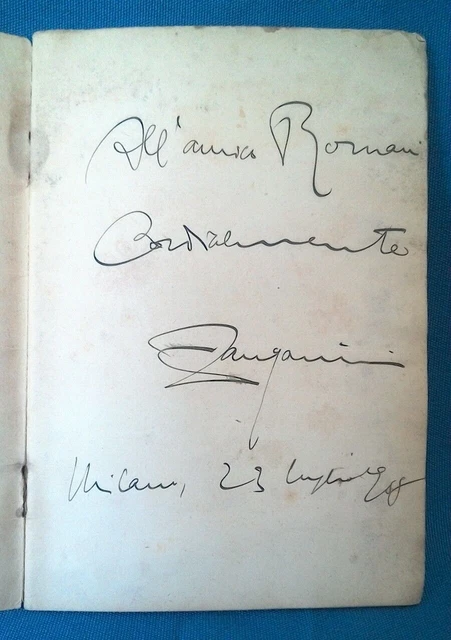 All'amico Romani
Cordialmente
Zanganini
Milano, 23 luglio